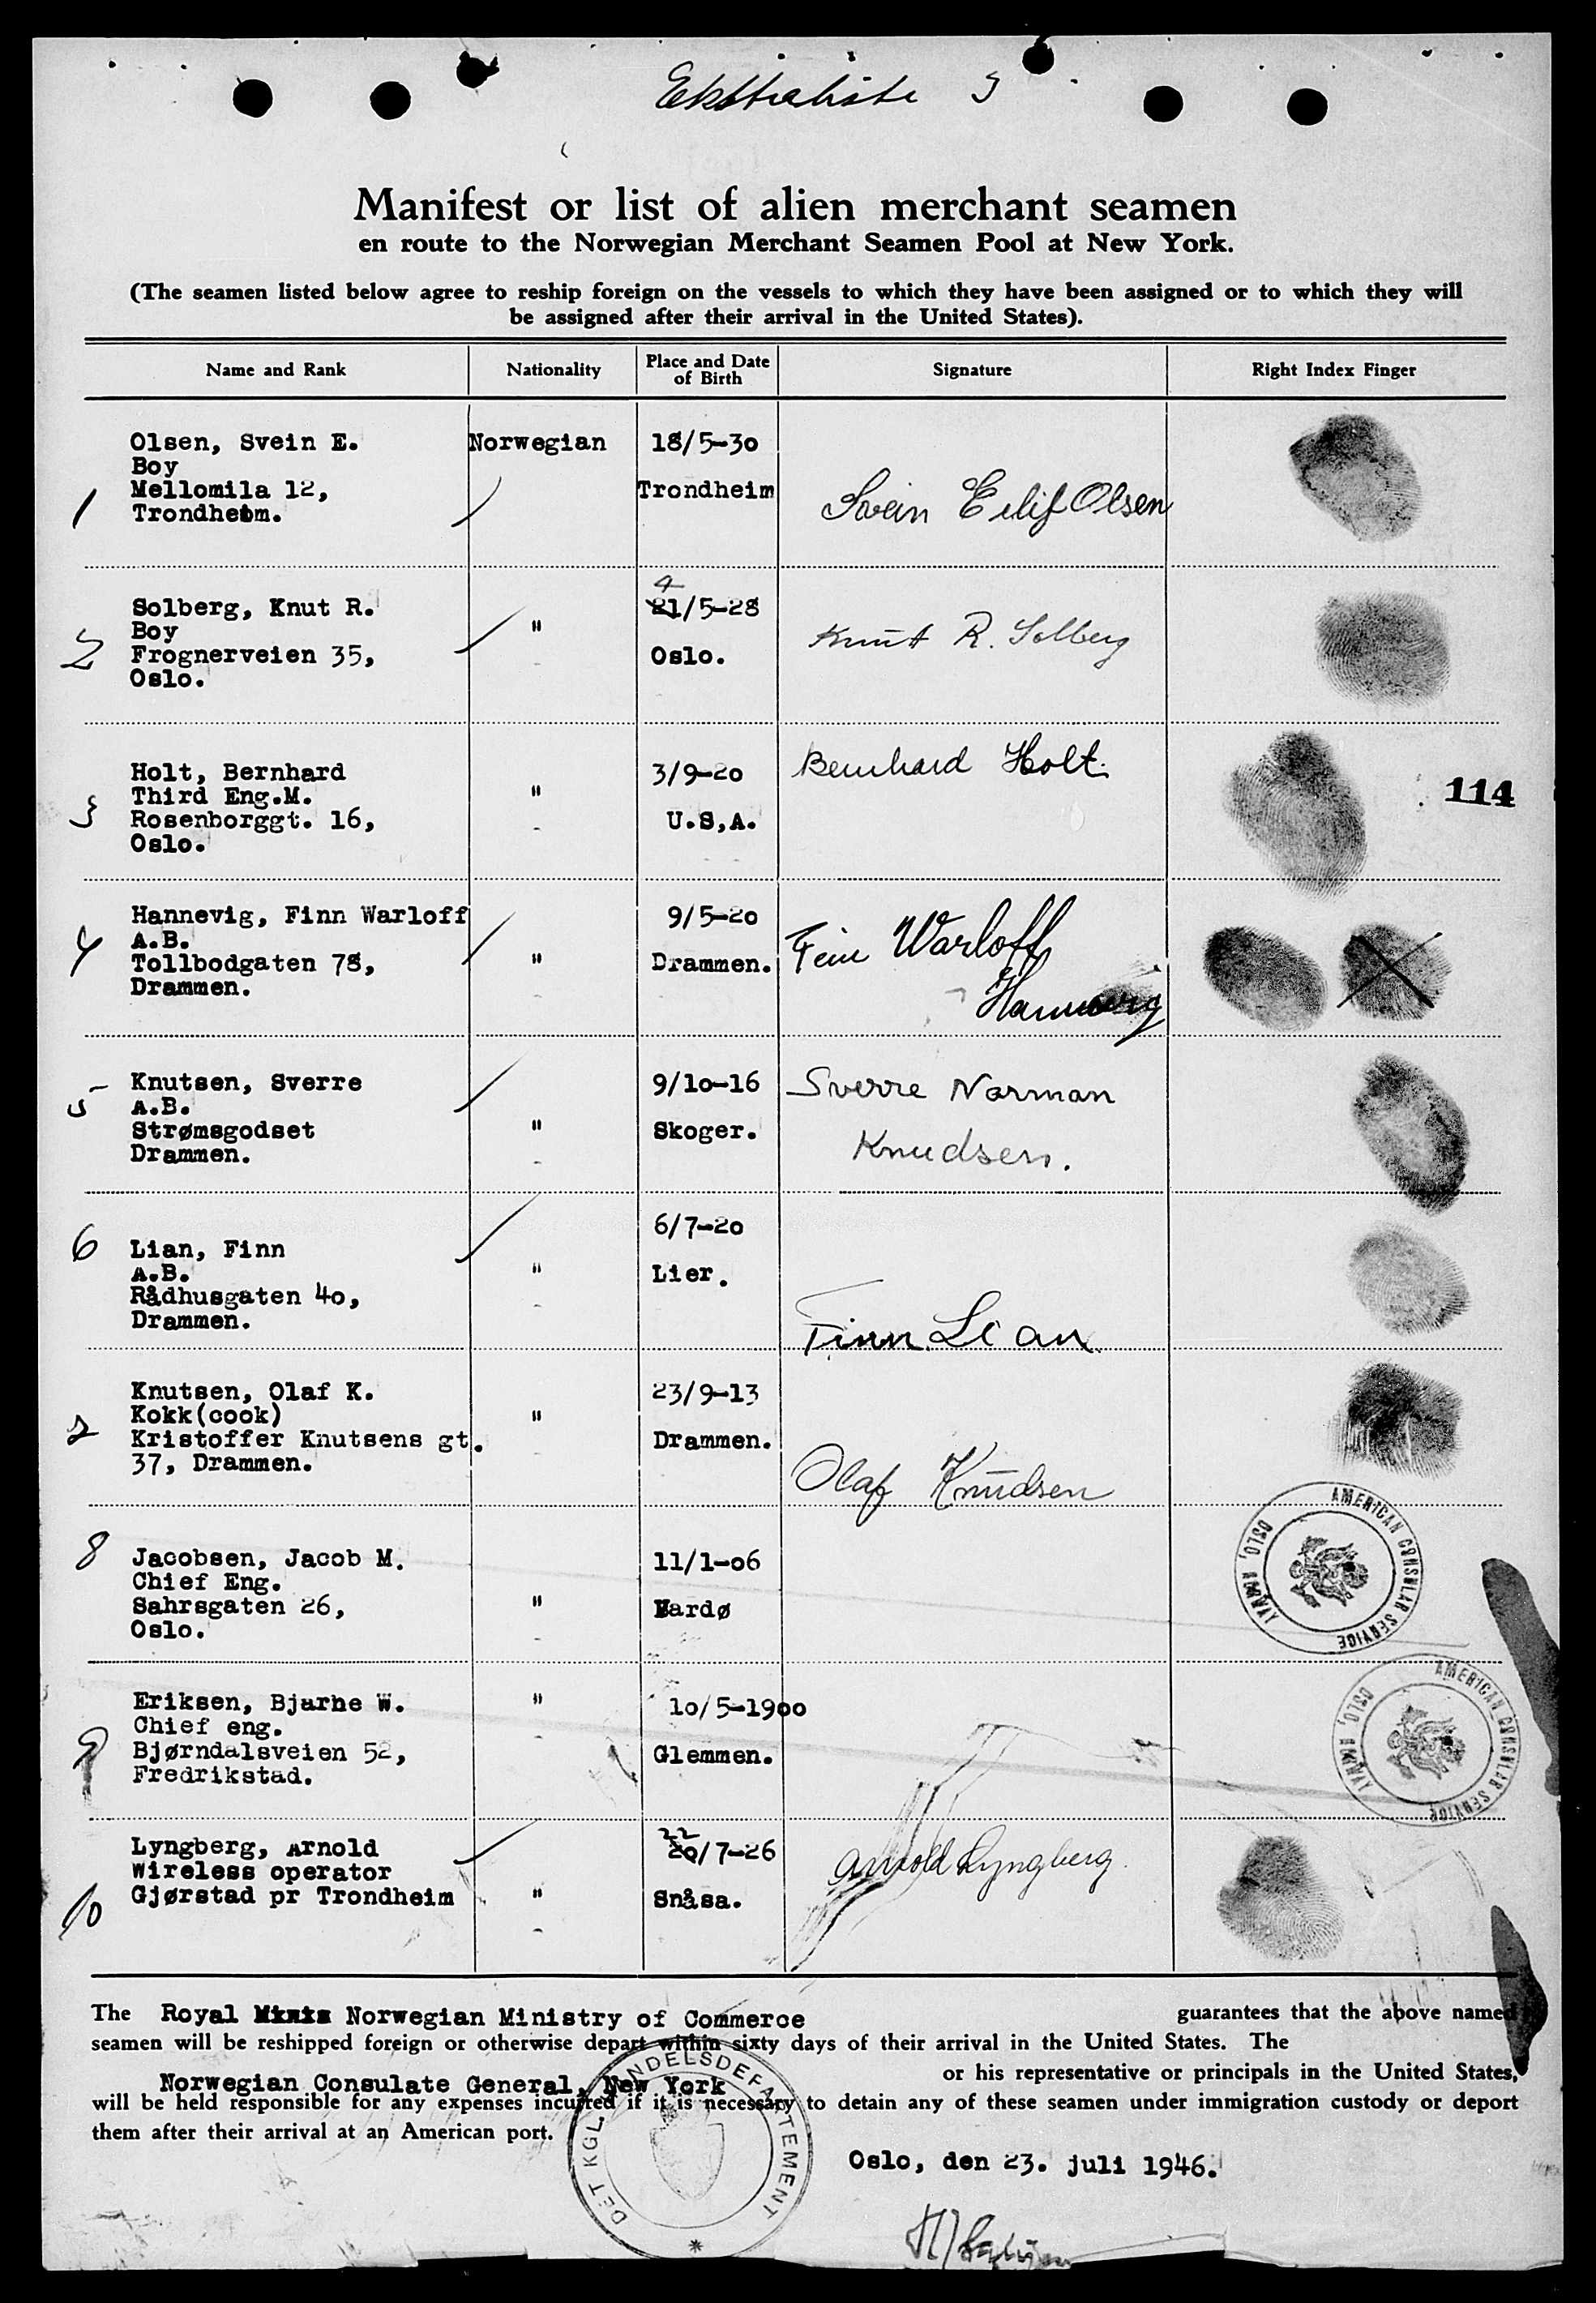 Ekstraliste 3
Manifest or list of alien merchant seamen
en route to the Norwegian Merchant Seamen Pool at New York.
(The seamen listed below agree to reship foreign on the vessels to which they have been assigned or to which they will
be assigned after their arrival in the United States).
Name and Rank Nationality Place and Date of Birth Signature Right Index Finger
1
Olsen, Svein E. Norwegian 18/5-30
Boy
Mellomila 12, Trondheim
Trondheim.
Svein Eilif Olsen
2
4
Solberg, Knut R. 21/5-28
Boy "
Frognerveien 35, Oslo.
Oslo.
Knut R. Solberg
3
Holt, Bernhard 3/9-20
Third Eng.M. "
Rosenborggt. 16, U.S,A.
Oslo.
Bernhard Holt.
114
4
Hannevig, Finn Warloff 9/5-20
A.B.
Tollbodgaten 78, " Drammen.
Drammen.
Finn Warloff
Hannevig
5
Knutsen, Sverre 9/10-16
A.B.
Strømsgodset " Skoger.
Drammen.
Sverre Norman
Knudsen.
6
6/7-20
Lian, Finn
A.B. " Lier.
Rådhusgaten 40,
Drammen.
Finn Lian
Knutsen, Olaf K. 23/9-13
Kokk(cook) "
Kristoffer Knutsens gt. Drammen.
37, Drammen.
Olaf Knudsen
8
Jacobsen, Jacob M. 11/1-06
Chief Eng.
Sahrsgaten 26, " Vardø
Oslo.
AMERICAN CONSULAR SERVICE
OSLO, NORWAY
9
Eriksen, Bjarne W. " 10/5-1900
Chief eng.
Bjørndalsveien 52, Glemmen.
Fredrikstad.
AMERICAN CONSULAR SERVICE
OSLO, NORWAY
10
22
Lyngberg, Arnold 20/7-26
Wireless operator
Gjørstad pr Trondheim " Snåsa.
Arnold Lyngberg.
The Royal Norwegian Ministry of Commerce guarantees that the above named
seamen will be reshipped foreign or otherwise depart within sixty days of their arrival in the United States. The
Norwegian Consulate General, New York or his representative or principals in the United States,
will be held responsible for any expenses incurred if it is necessary to detain any of these seamen under immigration custody or deport
them after their arrival at an American port.
DET KGL. HANDELSDEPARTEMENT
Oslo, den 23. juli 1946.